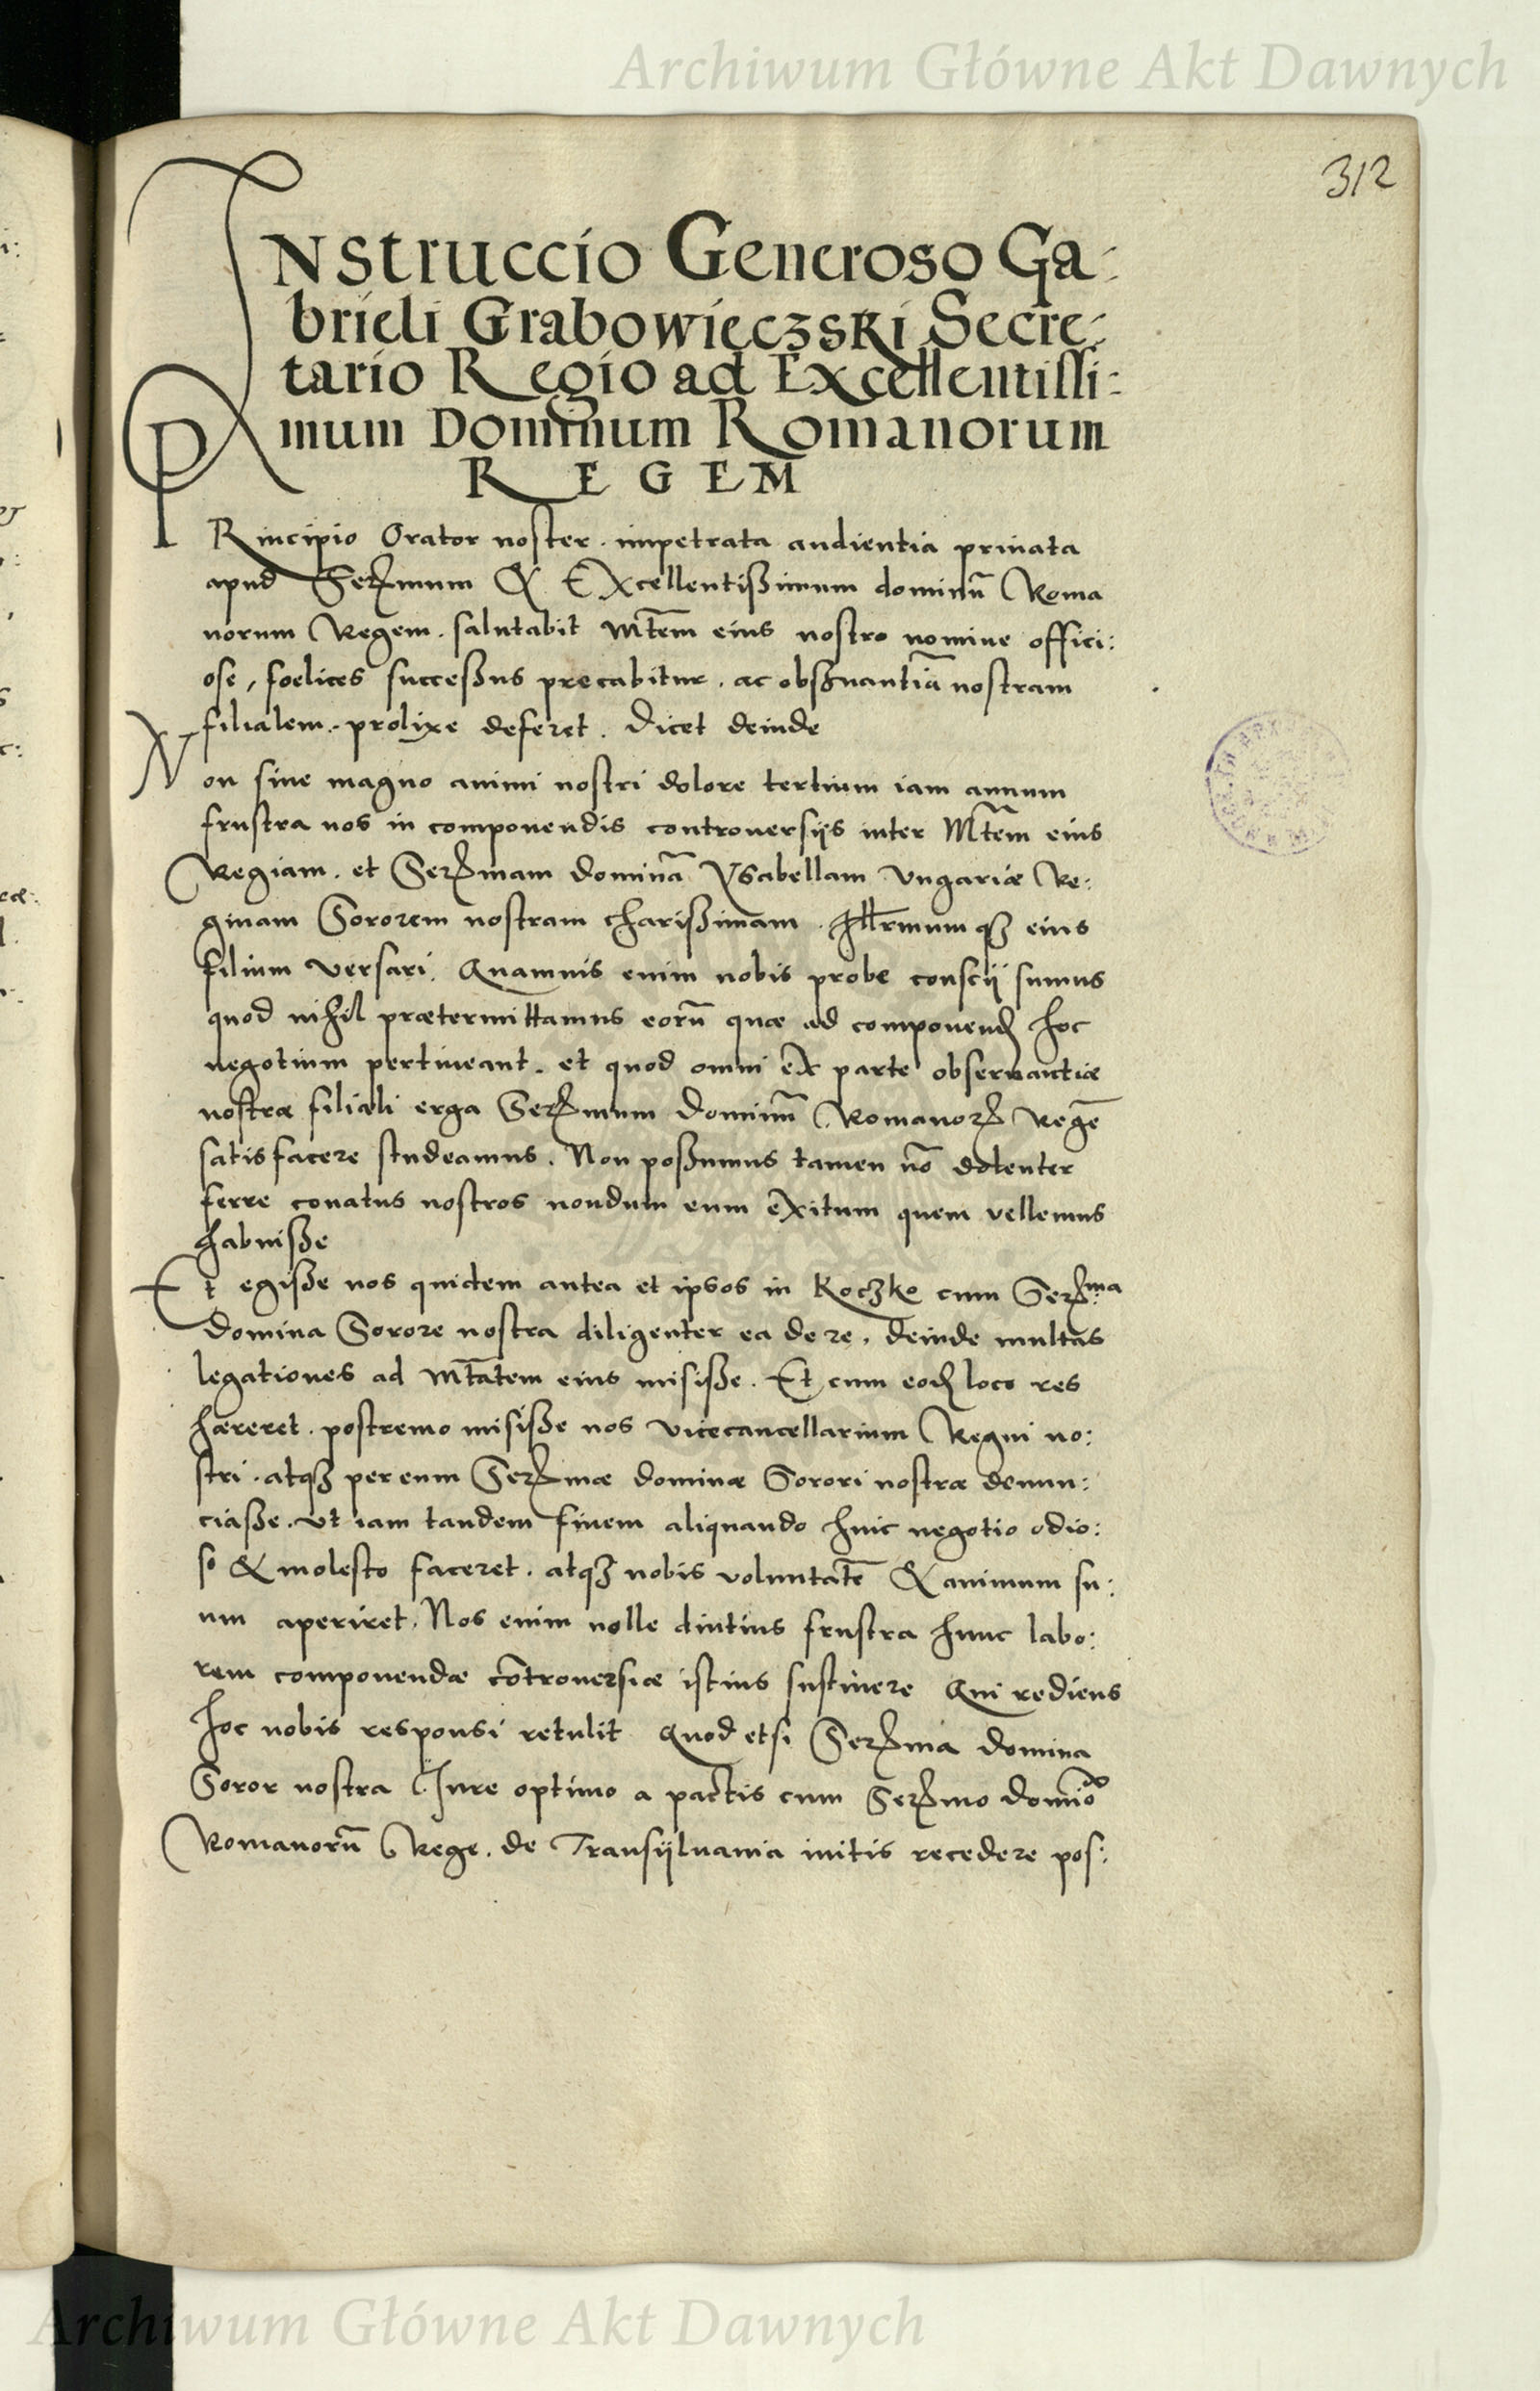 Archiwum Główne Akt Dawnych
312
INstruccio Generoso Ga:
brieli Grabowieczski Secre:
tario Regio ad Excellentissi:
mum Dominum Romanorum
REGEM
PRincipio Orator noster. impetrata audientia priuata
apud Serꝫmum & Excellentißimum dominū Roma
norum Regem. salutabit Mtēm eius nostro nomine offici:
ose, foelices succeßus precabitur. ac obsꝫuantiā nostram
filialem. prolixe deferet. Dicet deinde
Non sine magno animi nostri dolore tertium iam annum
frustra nos in componendis controuersijs inter Mtēm eius
Regiam. et Serꝫmam dominā Ysabellam Vngariæ Re:
ginam Sororem nostram charißimam. Illrmum qꝫ eius
filium versari. Quamuis enim nobis probe conscij sumus
quod nihil prætermittamus eorū quæ ad componend hoc
negotium pertineant. et quod omni ex parte obseruantiæ
nostræ filiali erga Serꝫmum Dominū Romanorꝫ Regē
satisfacere studeamus. Non poßumus tamen nō dolenter
ferre conatus nostros nondum eum exitum quem vellemus
habuiße
Et egiße nos quidem antea et ipsos in Koczko cum Serꝫma
Domina Sorore nostra diligenter ea de re. deinde multas
legationes ad Mtātem eius misiße. Et cum eod loco res
hæreret. postremo misiße nos vicecancellarium Regni no:
stri. atqꝫ per eum Serꝫmæ dominæ Sorori nostræ denun:
ciaße. vt iam tandem finem aliquando huic negotio odio:
so & molesto faceret. atqꝫ nobis voluntatē & animum su:
um aperiret. Nos enim nolle diutius frustra hunc labo:
rem componendæ cōtrouersiæ istius sustinere Qui rediens
hoc nobis responsi retulit Quod etsi Serꝫma domina
Soror nostra Iure optimo a pactis cum Serꝫmo domīo
Romanorū Rege. de Transijluania initis recedere pos:
Archiwum Główne Akt Dawnych